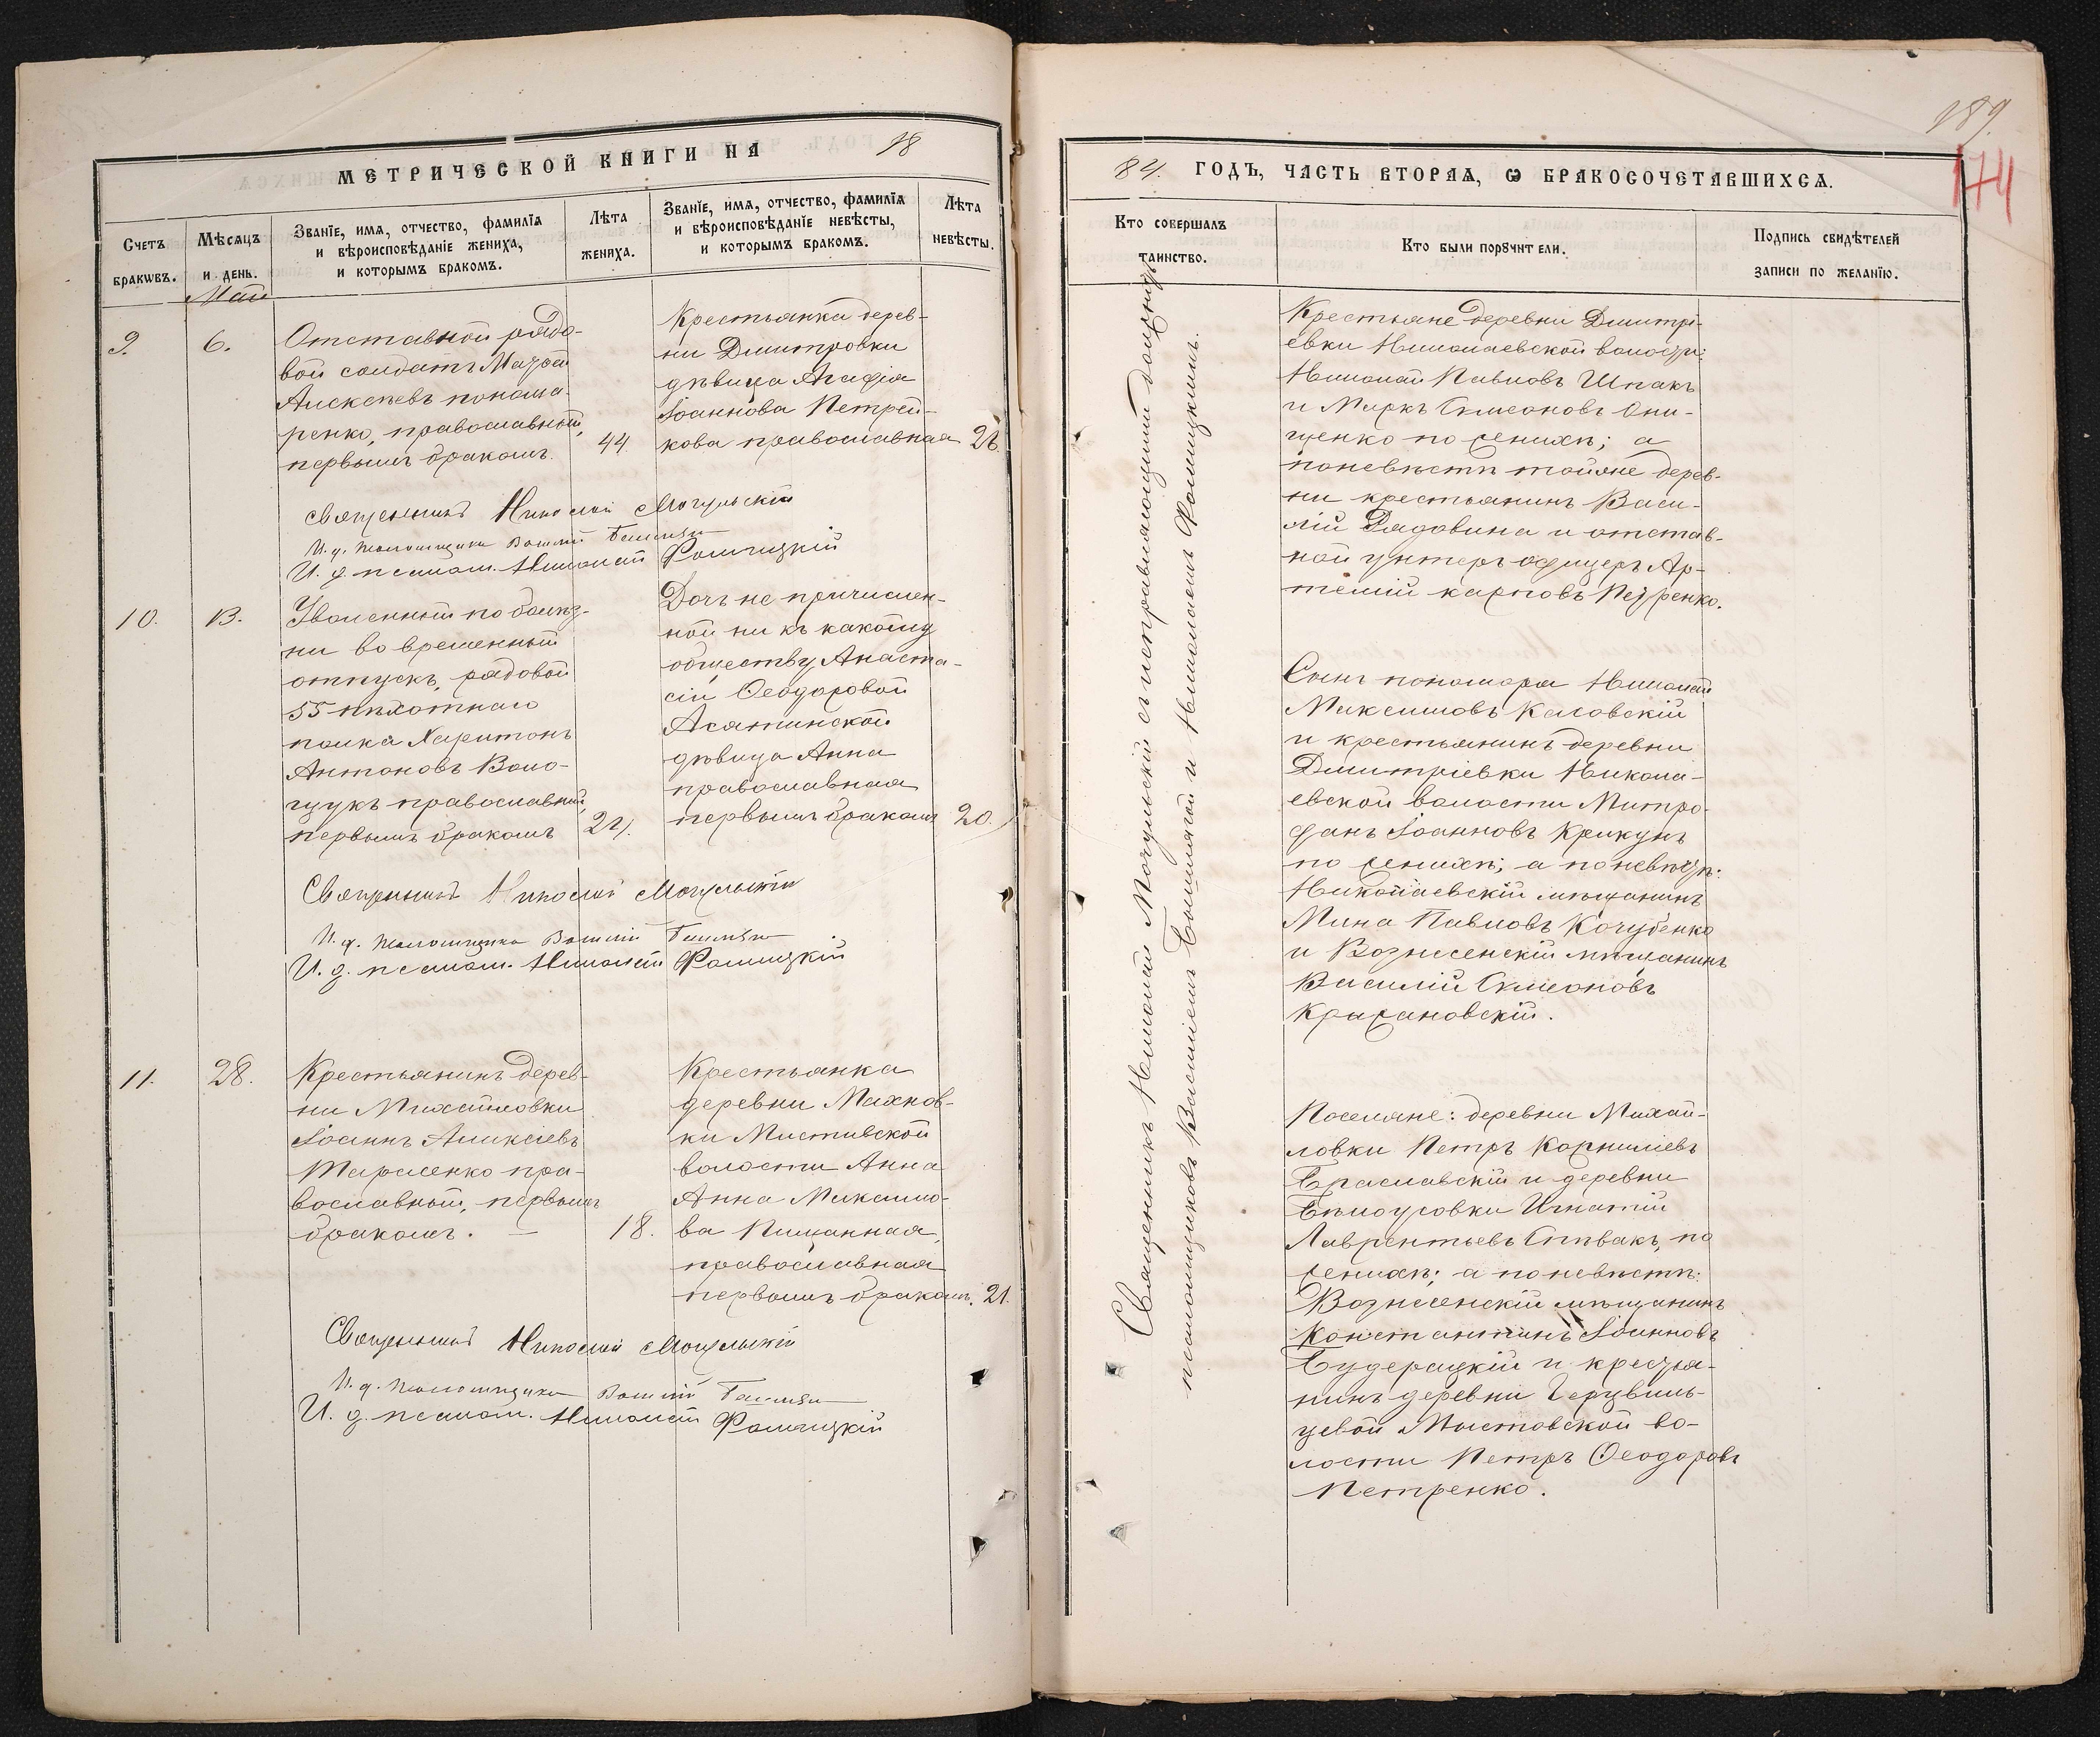 МЕТРИЧЕСКОЙ КНИГИ НА 18
Счетъ браковъ.
Мѣсяцъ и день.
Званїе, имя, отчество, фамилїя и вѣроисповѣданїе жениха, и которымъ бракомъ.
Лѣта жениха.
Званїе, имя, отчество, фамилїя и вѣроисповѣданїе невѣсты, и которымъ бракомъ.
Лѣта невѣсты.
Май
9.
6.
Отставной рядо-
вой солдатъ
Алексѣевъ понома-
ренко, православный,
первымъ бракомъ.
44.
Крестьянка дерев-
ни Димитровки
дѣвица Агафія
Іоаннова Петрей-
кова православная
26.
священникъ Николай Могульскій
И. д. псаломщика Василій
И. д. псалом. Николай Фомицкій
10.
13.
Уволенный по болѣз-
ни во временный
отпускъ, рядовой
55 пѣхотнаго
полка Харитонъ
Антоновъ Воло-
щукъ православный,
первымъ бракомъ
27.
Дочь не причислен-
ной ни къ какому
обществу Анаста-
сіи Ѳеодоровой
дѣвица Анна
православная
первымъ бракомъ
20.
Священникъ Николай Могульскій
И. д. псаломщика Василій
И. д. псалом. Николай Фомицкій
11.
28.
Крестьянинъ дерев-
ни Михайловки
Іоаннъ Алексіевъ
Тарасенко пра-
вославный, первымъ
бракомъ. —
18.
Крестьянка
деревни Махнов-
ки Мостивской
волости Анна
Анна Максимо-
ва Пищанная,
православная
первымъ бракомъ.
21.
Священникъ Николай Могульскій
И. д. псаломщика Василій
И. д. псалом. Николай Фомицкій
189.
174
84. ГОДЪ, ЧАСТЬ ВТОРАЯ, Ѡ БРАКОСОЧЕТАВШИХСЯ.
Кто совершалъ таинство.
Кто были порꙋчители.
Подпись свидѣтелей записи по желанїю.
Священникъ Николай Могульскій съ исправляющими должность
псаломщиковъ Василіемъ и Николаемъ Фомицкимъ.
Крестьяне деревни Димитрі-
евки Николаевской волости:
Николай Павловъ Шпакъ
и Маркъ Симеоновъ Они-
щенко по женихѣ; а
по невѣстѣ тойже дерев-
ни крестьянинъ Васи-
лій и отстав-
ной унтеръ офицеръ Ар-
темій Карповъ
Сынъ пономаря Николай
Максимовъ
и крестьянинъ деревни
Димитріевки Никола-
евской волости Митро-
фанъ Іоанновъ Крикунъ
по женихѣ; а по невѣстѣ:
Николаевскій мѣщанинъ
Мина Павловъ Кочубенко
и Вознесенскій мѣщанинъ
Василій Симеоновъ
Крыжановскій.
Поселяне: деревни Михай-
ловки Петръ Корниліевъ
Браславскій и деревни
Бѣлоусовки Игнатій
Лаврентьевъ Спѣвакъ, по
женихѣ; а по невѣстѣ:
Вознесенскій мѣщанинъ
Константинъ Іоанновъ
Будерацкій и крестья-
нинъ деревни
Мостовской во-
лости Петръ Ѳеодоровъ
Петренко.